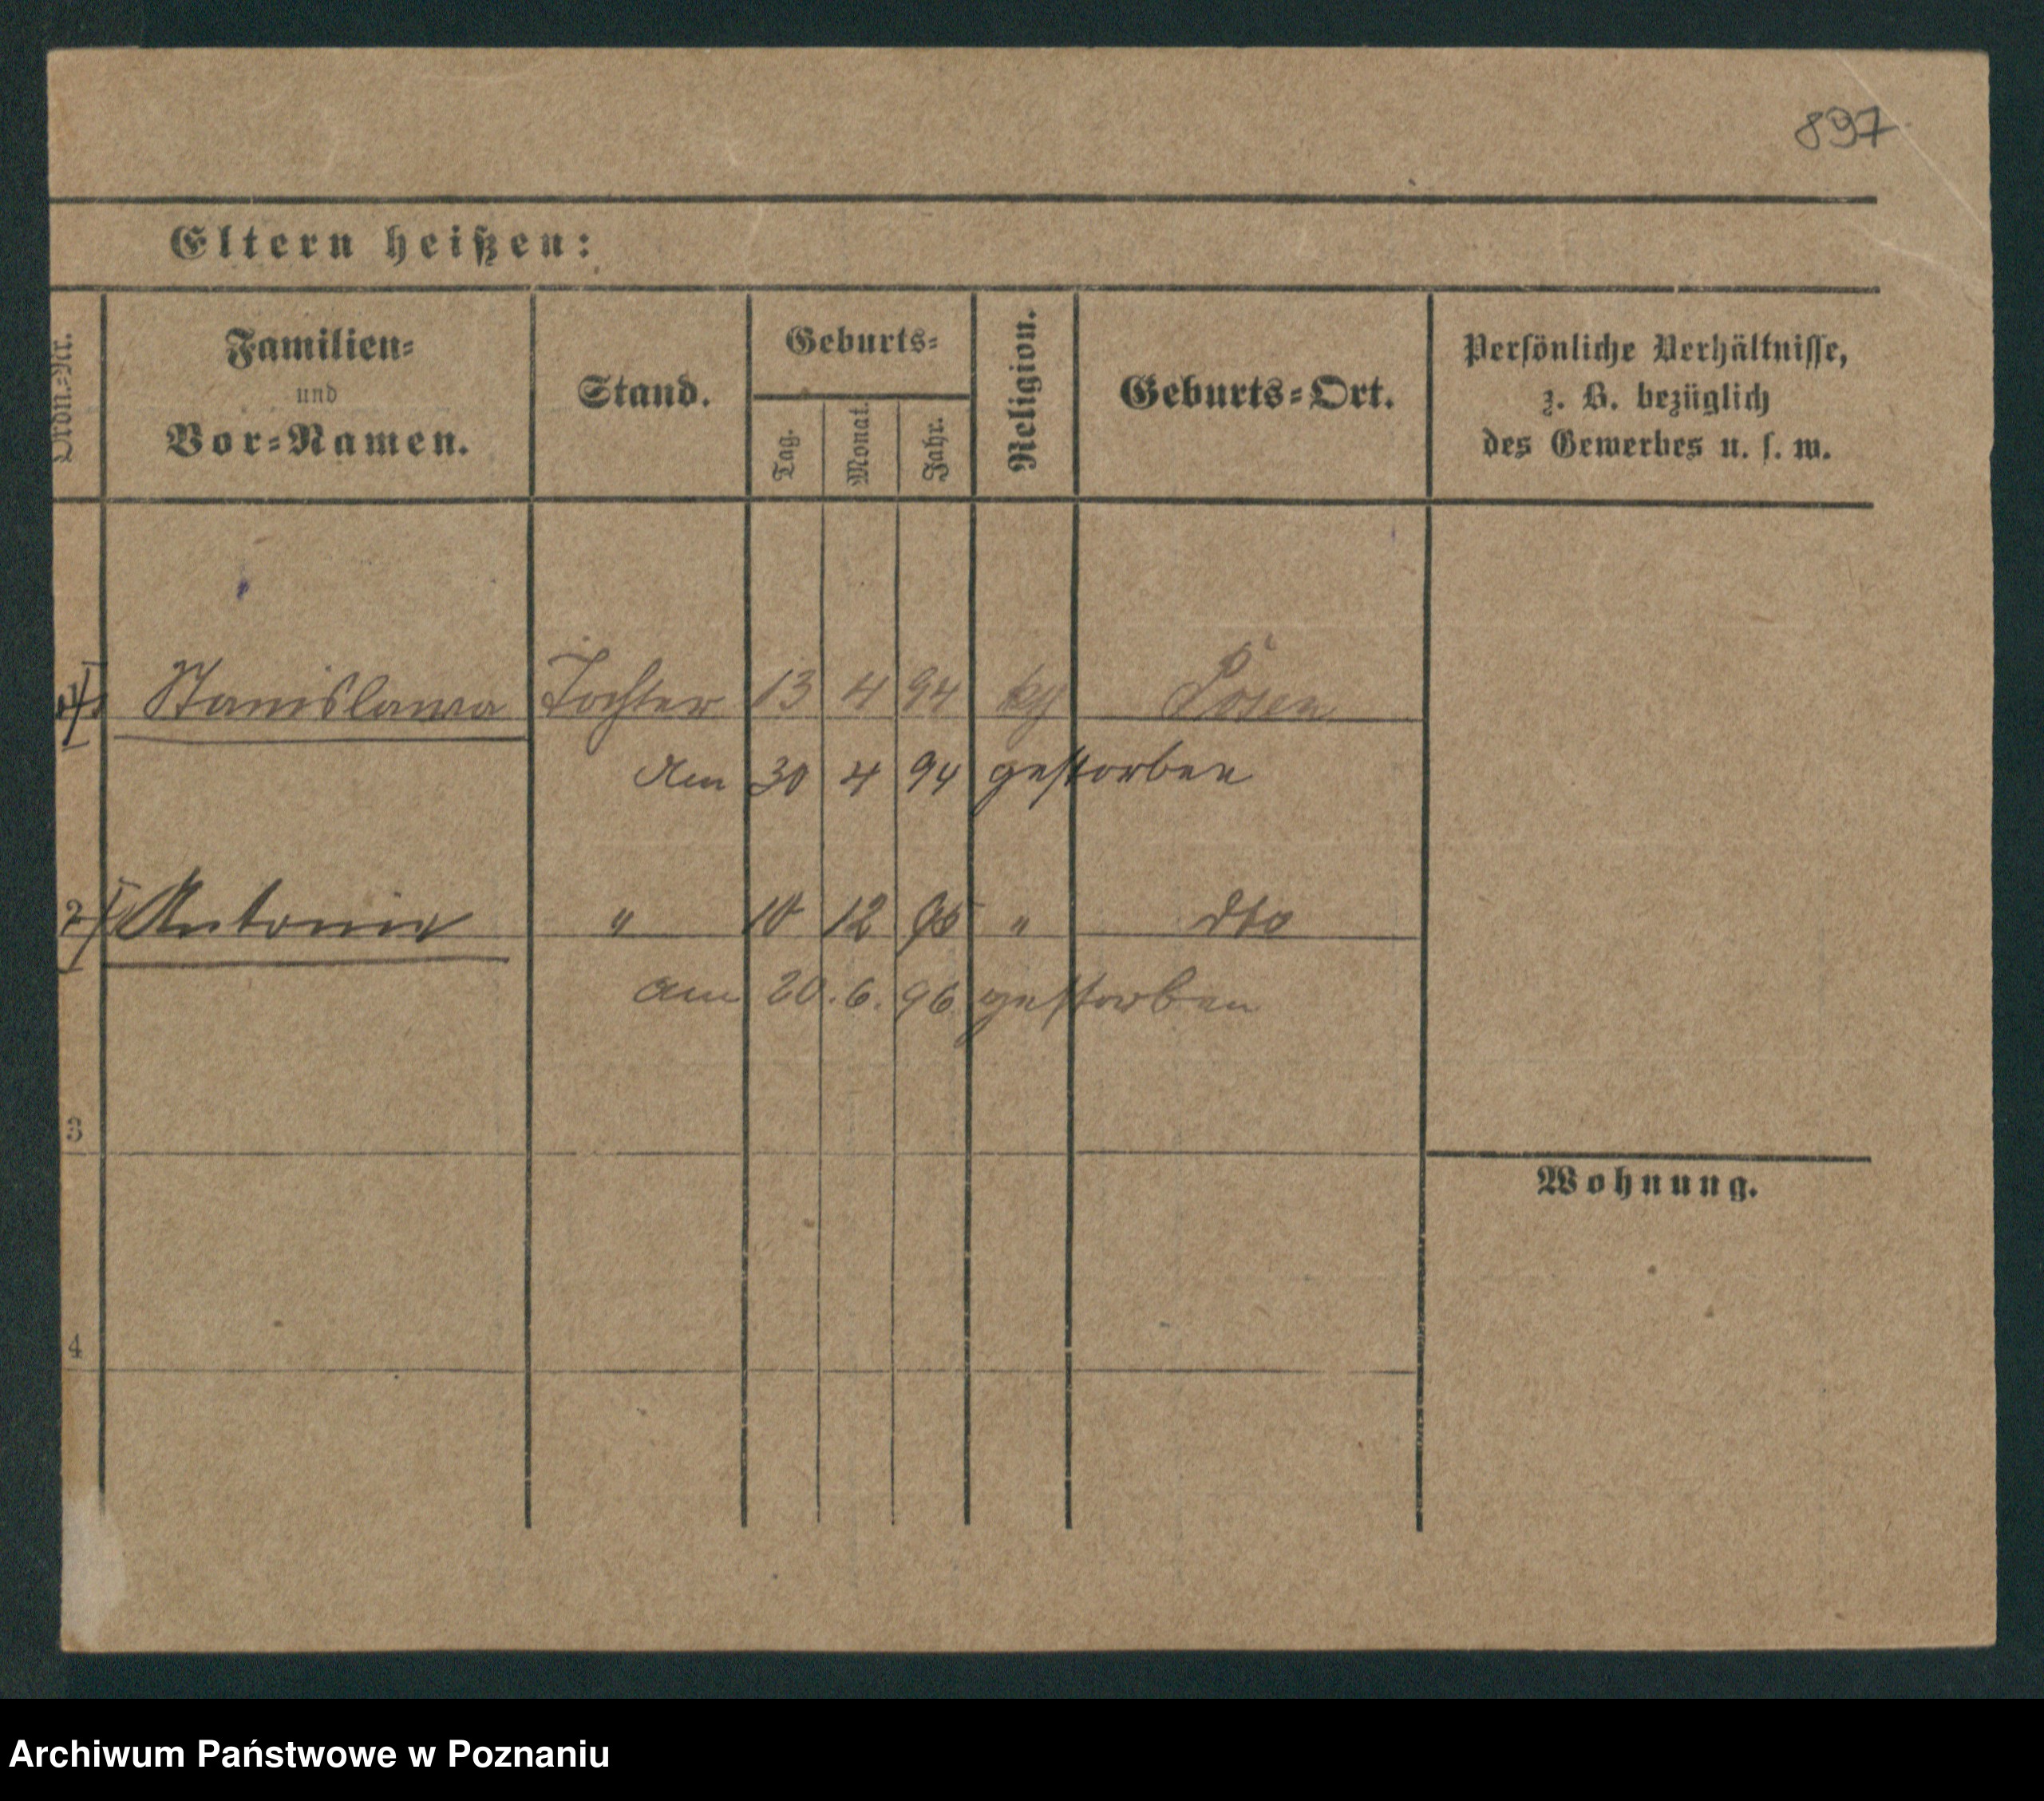 897
Eltern heißen:
Ordn.=Nr.
Familien=
und
Vor=Namen.
Stand.
Geburts=
Tag.
Monat.
Jahr.
Religion.
Geburts=Ort.
Persönliche Verhältnisse,
z. B. bezüglich
des Gewerbes u. s. w.
Stanislawa Tochter 13 4 94 kgl Posen
Am 30 4 94 gestorben
2 Antonie " 10 12 95 " dto
am 20. 6. 96 gestorben
3
Wohnung.
4
Archiwum Państwowe w Poznaniu